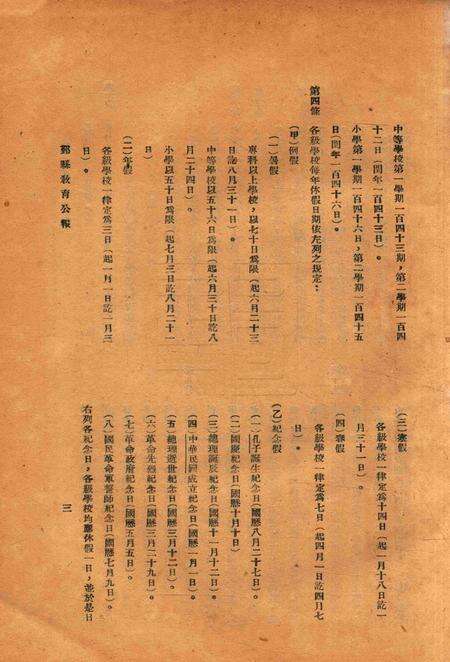 中等學校第一學期一百四十三期,第二學期一百四
十二日(閏年一百四十三日)。
小學第一學期一百四十六日,第二學期一百四十五
日(閏年一百四十六日)。
第四條 各級學校每年休假日期依左列之規定:
(甲)例假
(一)暑假
專科以上學校,以七十日爲限(起六月二十三
日訖八月三十一日)。
中等學校以五十六日爲限(起六月三十日訖八
月二十四日)。
小學以五十日爲限(起七月三日訖八月二十一
日)
(二)年假
各級學校一律定爲三日(起一月一日訖一月三
日)。
鄞縣教育公報
(三)寒假
各級學校一律定爲十四日(起一月十八日訖一
月三十一日)。
(四)春假
各級學校一律定爲七日(起四月一日訖四月七
日)。
(乙)紀念假
(一)孔子誕生紀念日(國曆八月二十七日)。
(二)國慶紀念日(國曆十月十日)
(三)總理誕辰紀念日(國曆十一月十二日)。
(四)中華民國成立紀念日(國曆一月一日)。
(五)總理逝世紀念日(國曆三月十二日)。
(六)革命先烈紀念日(國曆三月二十九日)。
(七)革命政府紀念日(國曆五月五日)。
(八)國民革命軍誓師紀念日(國曆七月九日)。
右列各紀念日,各級學校均應休假一日,並於是日
三